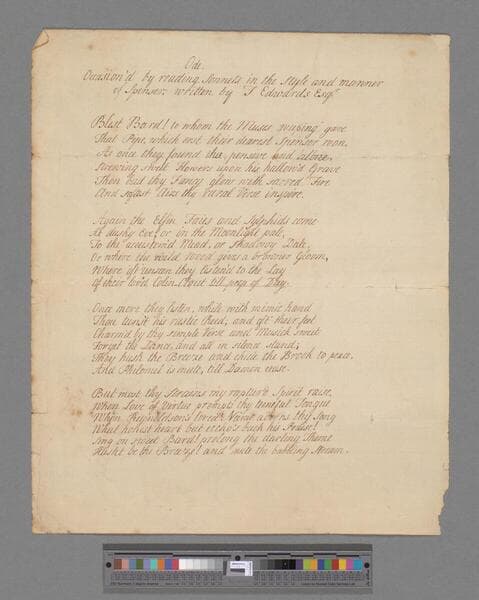 Ode.
Occasion'd by reading Sonnets in the Style and manner
of Spenser, written by T Edwards Esqr.
Blest Bard! to whom the Muses weeping gave
That Pipe, which erst their dearest Spenser won,
As once they found thee pensive and alone,
Strewing sweet Flowers upon his hallow'd Grave
Then bad thy Fancy glow with sacred Fire
And softest Airs thy rural Verse inspire.
Again the Elfin Faies and Sylphids come
At dusky Eve, or in the Moonlight pale,
To th' accustom'd Mead, or Shadowy Dale,
Or where the wild wood gives a browner Gloom,
Where oft unseen they listend to the Lay
Of their lov'd Colin Clout till peep of Day.
Once more they listen, while with mimic hand
Thou tun'st his rustic Reed, and oft their feet
Charm'd by thy simple Verse and Musick sweet
Forget the Dance, and all in silence stand;
They hush the Breeze and chide the Brook to peace,
And Philomel is mute, till Damon cease.
But most thy Strains my raptur'd Spirit raise,
When Love of Virtue prompts thy tuneful Tongue
When thy Nelson's loved adorns thy Song
What honest heart but eccho's back his Praise!
Sing on sweet Bard! prolong the darling Theme
Husht be the Breeze! and mute the bubbling Stream.